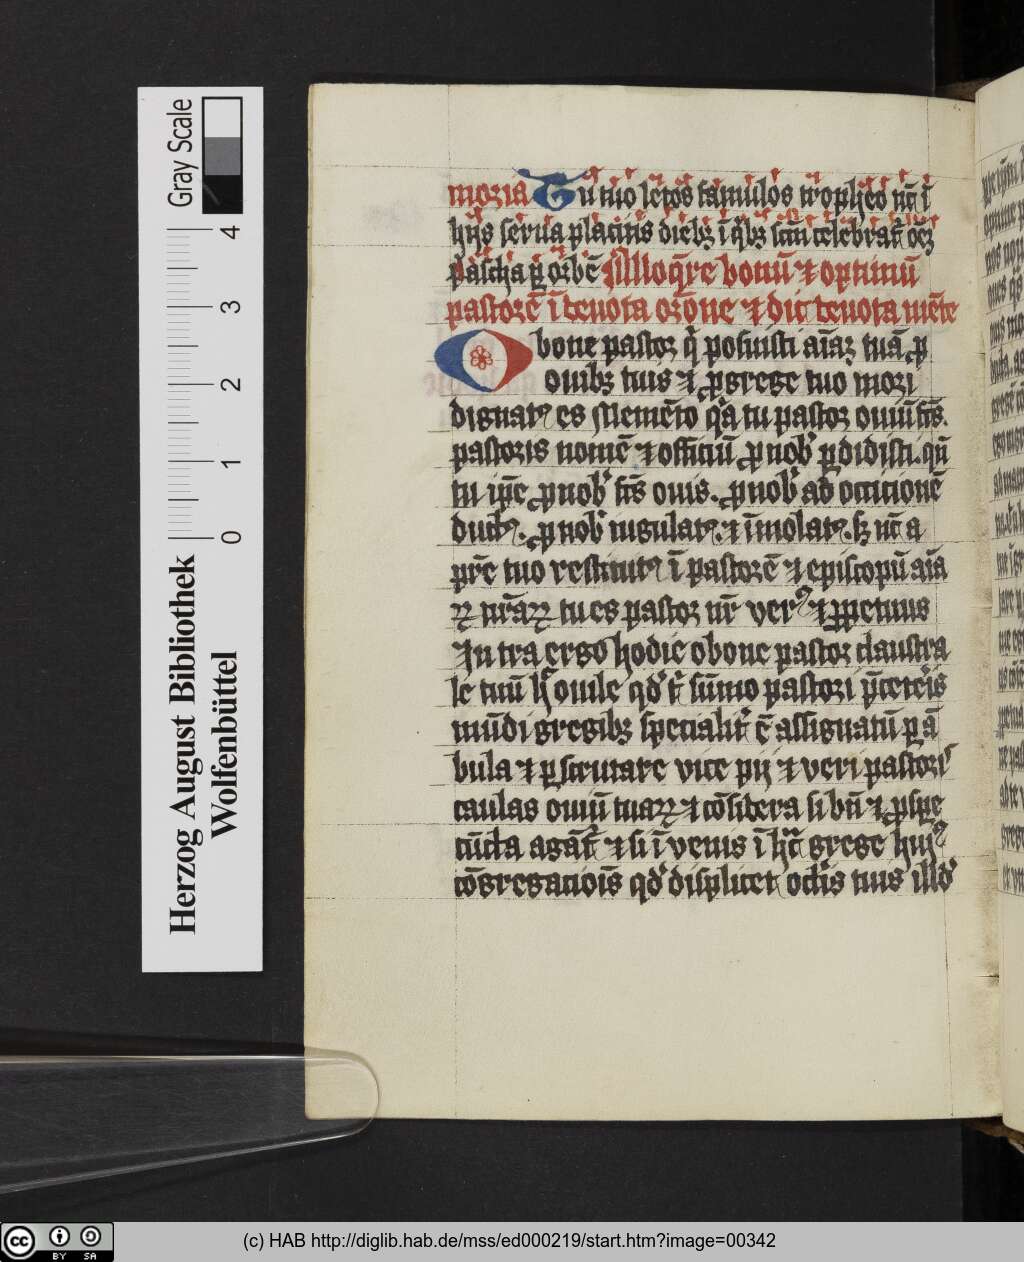 Gray Scale
4
3
2
1
0
Herzog August Bibliothek
Wolfenbüttel
moria Tu tuo letos famulos tropheo nr̄ī ī
hijs serua placitis diebꝫ ī qͥbꝫ sctūm celebrat̄ oēꝫ
pascha ꝑ orbē Alloq̄re bonū ⁊ optimū
pastorē ī deuota orōne ⁊ dic deuota mēte
O bone pastor qͥ posuisti aīaꝫ tuā ꝓ
ouibꝫ tuis ⁊ ꝓ grege tuo mori
dignatꝰ es Memēto qͣ tu pastor ouiū fc̄s
pastoris nomē ⁊ officiū ꝓ nobˀ ꝑdidisti. qn̄
tu ip̄e ꝓ nobˀ fc̄s ouis. ꝓ nobˀ ad occicionē
ductꝰ. ꝓ nobˀ iugulatꝰ. ⁊ īmolatꝰ. sꝫ nūc a
pr̄e tuo restitutꝰ ī pastorē ⁊ episcopū aīa
ꝝ nr̄aꝝ tu es pastor nr̄ verꝰ ⁊ ꝑpetuus
Intra ergo hodie o bone pastor claustra
le tuū hͦ ouile qdˀ t̄ sūmo pastori p̄ ceteris
mūdi gregibꝫ specialit̄ ē assignatū ꝑ ā
bula ⁊ ꝑscrutare vice pij ⁊ veri pastoris
caulas ouiū tuaꝝ ⁊ cōsidera si bn̄ ⁊ ꝓspe
cūcta agāt̄ ⁊ si īvenis ī hͨ grege huiꝰ
cōgregatiōis qdˀ displicet oclīs tuis illdˀ
(c) HAB http://diglib.hab.de/mss/ed000219/start.htm?image=00342
cc BY SA